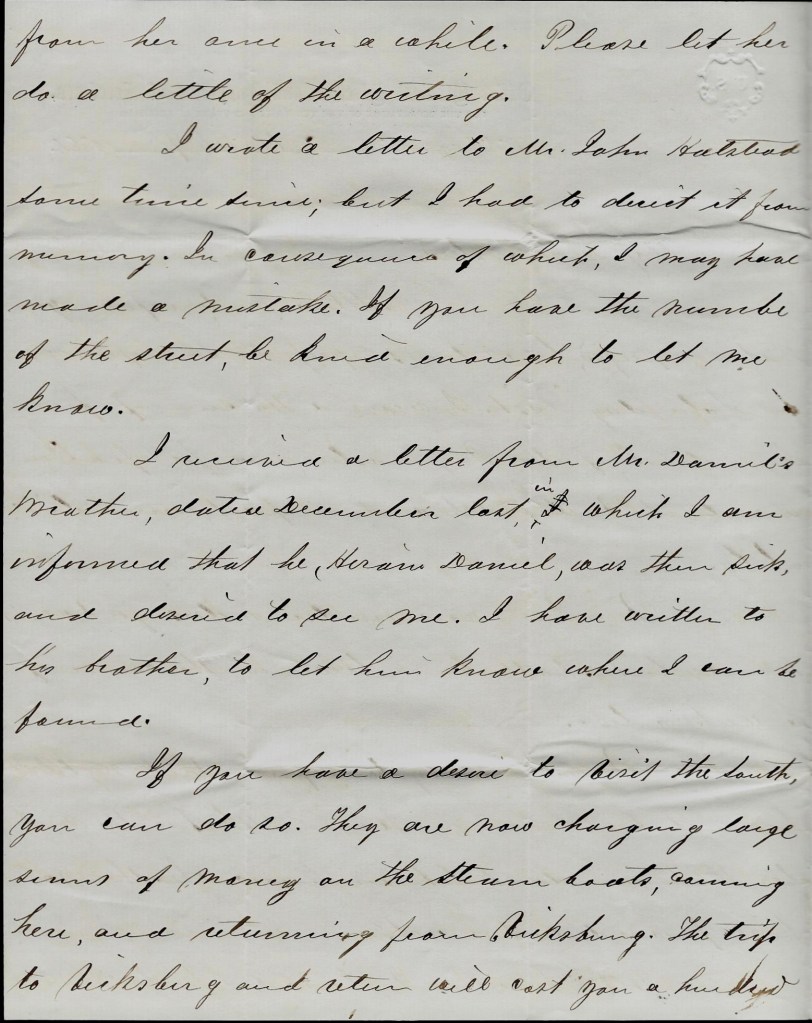 from her once in a while. Please let her
do a little of the writing.
I wrote a letter to Mr. John Halstead
some time since; but I had to direct it from
memory. In consequence of which, I may have
made a mistake. If you have the numbe
of the street, be kind enough to let me
know.
I received a letter from Mr. Daniel's
Brother, dated December last, in which I am
informed that he, Hiram Daniel, was then sick,
and desired to see me. I have written to
his brother, to let him know where I can be
found.
If you have a desire to visit the South,
you can do so. They are now charging large
sums of money on the steam boats, coming
here, and returning from Vicksburg. The trip
to Vicksburg and return will cost you a hundred